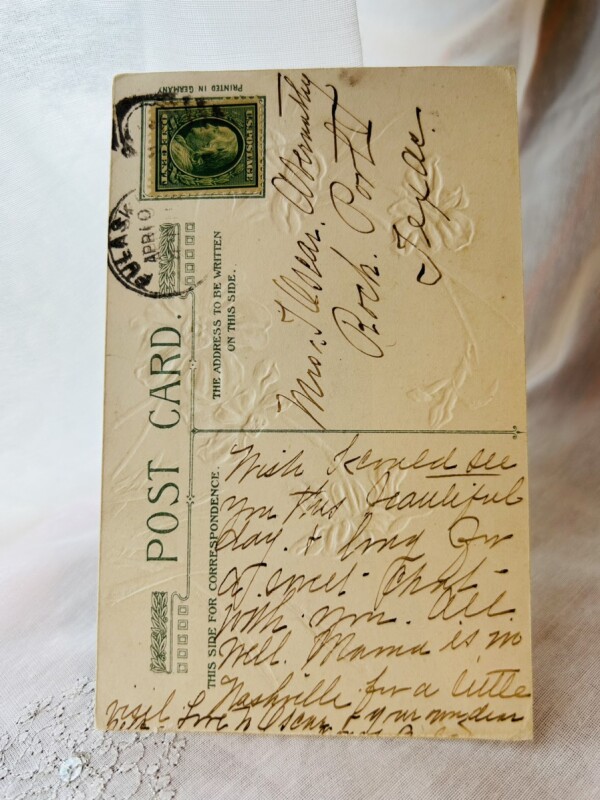 POST CARD.
PRINTED IN GERMANY
U.S. POSTAGE
ONE CENT
PULAS
APR 10
THE ADDRESS TO BE WRITTEN
ON THIS SIDE.
Mrs. Oscar Abernathy
Rock Port
Texas.
THIS SIDE FOR CORRESPONDENCE.
Wish I could see
you this beautiful
day. & long for
a sweet chat
with you. All
well. Mama is in
Nashville for a little
visit. Love to Oscar & your